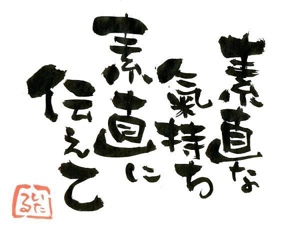 素直な
気持ち
素直に
伝えて
いたる